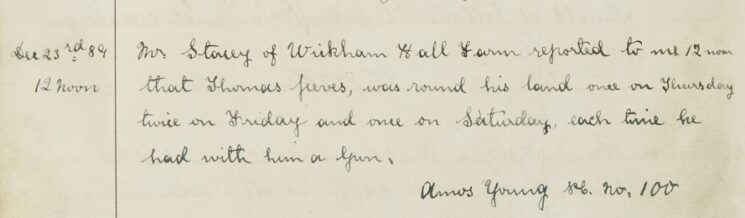 Dec 23rd 89
12 Noon
Mr Stacey of Wickham Hall Farm reported to me 12 noon
that Thomas Jeeves, was round his land once on Thursday
twice on Friday and once on Saturday, each time he
had with him a Gun.
Amos Young P.C. No. 100